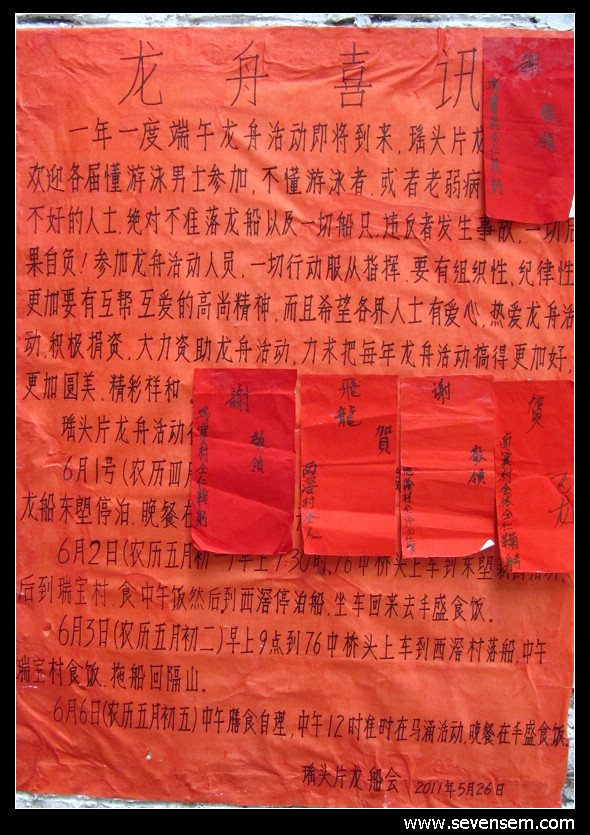 龙舟喜讯
一年一度端午龙舟活动即将到来,瑶头片龙
欢迎各届懂游泳男士参加,不懂游泳者,或者老弱病
不好的人士,绝对不准落龙船以及一切船只,违反者发生事故,一切后
果自负!参加龙舟活动人员,一切行动服从指挥,要有组织性,纪律性
更加要有互帮互爱的高尚精神,而且希望各界人士有爱心,热爱龙舟活
动,积极捐资,大力资助龙舟活动,力术把每年龙舟活动搞得更加好,
更加圆美,精彩祥和
瑶头片龙舟活动
6月1号(农历四月
龙船东塱停泊,晚餐在
6月2日(农历五月初一)早上7:30时,76中桥头上车到东塱
后到瑞宝村,食中午饭然后到西滘停泊船,坐车回来去手盛食饭。
6月3日(农历五月初二)早上9点到76中桥头上车到西滘村落船,中午
瑞宝村食饭,拖船回隔山.
6月6日(农历五月初五)中午膳食自理,中午12时准时在马涌活动,晚餐在手盛食饭.
瑶头片龙船会 2011年5月26日
謝
敬領
謝
敬領
飛龍
賀
西滘村全人
谢
敬領
贺
飞龙
www.sevensem.com